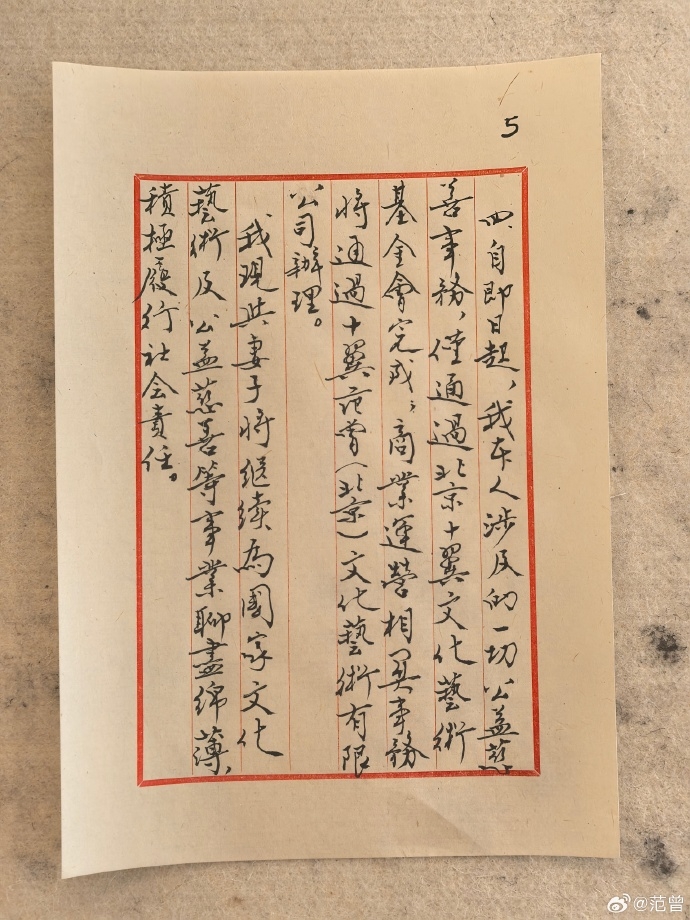 5
四、自即日起，我本人涉及的一切公益慈
善事務，僅通過北京十翼文化藝術
基金會完成；商業運營相關事務
將通過十翼范曾（北京）文化藝術有限
公司辦理。
我現與妻子將继续為國家文化
藝術及公益慈善等事業聊盡綿薄，
積極履行社会責任。
@范曾